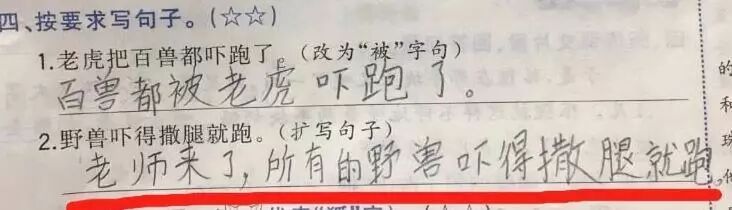 四、按要求写句子。(☆☆)
1.老虎把百兽都吓跑了。(改为“被”字句)
百兽都被老虎吓跑了。
2.野兽吓得撒腿就跑。(扩写句子)
老师来了,所有的野兽吓得撒腿就跑
的
和